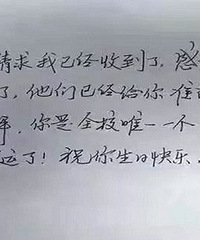 请求我已经收到了，感
了，他们已经给你准
，你是全校唯一一个
运了！祝你生日快乐